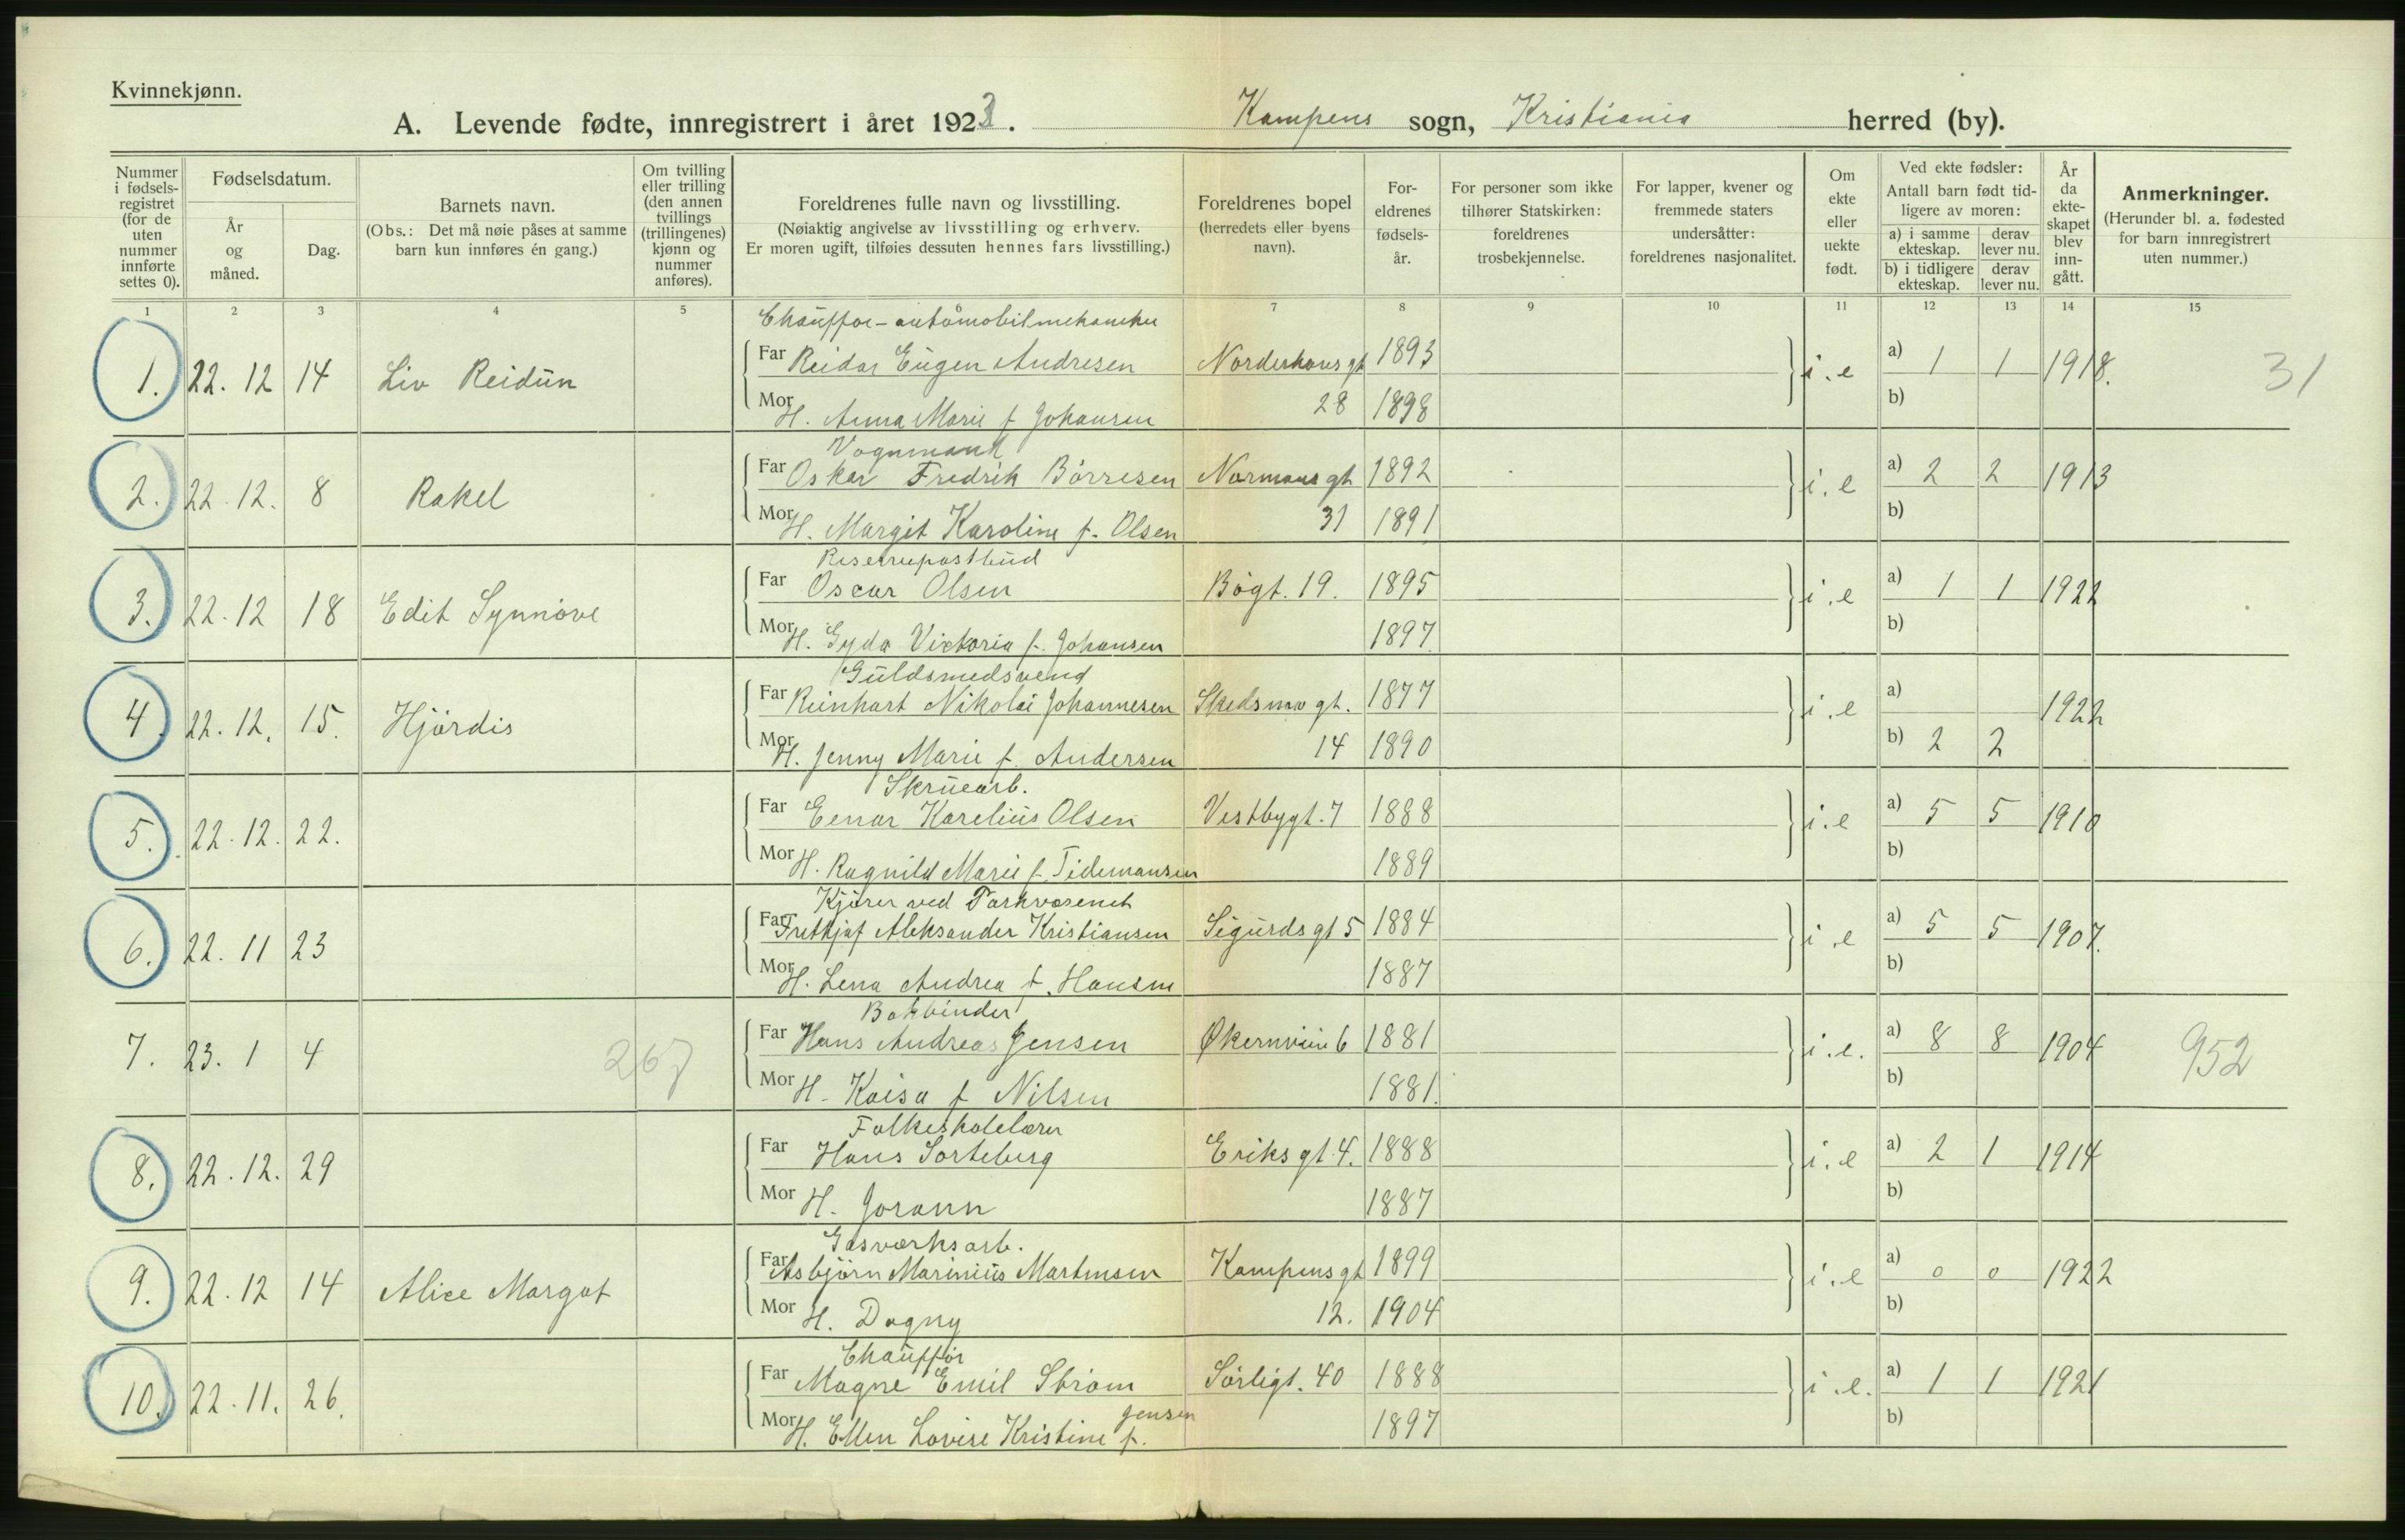 Kvinnekjønn.
A. Levende fødte, innregistrert i året 1923. Kampens sogn, Kristiania herred (by).
Nummer i fødsels-registret (for de uten nummer innførte settes 0).
Fødselsdatum.
År og måned.
Dag.
Barnets navn.
(Obs.: Det må nøie påses at samme barn kun innføres én gang.)
Om tvilling eller trilling (den annen tvillings (trillingenes) kjønn og nummer anføres).
Foreldrenes fulle navn og livsstilling.
(Nøiaktig angivelse av livsstilling og erhverv. Er moren ugift, tilføies dessuten hennes fars livsstilling.)
Foreldrenes bopel (herredets eller byens navn).
For-eldrenes fødsels-år.
For personer som ikke tilhører Statskirken: foreldrenes trosbekjennelse.
For lapper, kvener og fremmede staters undersåtter: foreldrenes nasjonalitet.
Om ekte eller uekte født.
Ved ekte fødsler: Antall barn født tid-ligere av moren:
a) i samme ekteskap. derav lever nu.
b) i tidligere ekteskap. derav lever nu.
År da ekte-skapet blev inn-gått.
Anmerkninger.
(Herunder bl. a. fødested for barn innregistrert uten nummer.)
1 2 3 4 5 6 7 8 9 10 11 12 13 14 15
Chauffør-automobilmekaniker
1. 22. 12 14 Liv Reidun Far Reidar Eugen Andresen Norderhovsgt 1893 i.e a) 1 1 1918. 31
Mor H. Anna Marie f Johansen 28 1898 b)
Vognmand
2. 22. 12. 8 Rakel Far Oskar Fredrik Börresen Normansgt 1892 i.e a) 2 2 1913
Mor H. Margit Karoline f. Olsen 31 1891 b)
Reservepostbud
3. 22. 12 18 Edit Synnöve Far Oscar Olsen Bögt. 19. 1895 i.e a) 1 1 1922
Mor H. Gyda Victoria f. Johansen 1897 b)
Guldsmedsvend
4. 22. 12. 15. Hjördis Far Reinhart Nikolai Johannesen Skedsmogt. 1877 i.e a) 1922
Mor H. Jenny Marie f. Andersen 14 1890 b) 2 2
Skruearb.
5. 22. 12. 22. Far Einar Karelius Olsen Vestbygt. 7 1888 i.e a) 5 5 1910
Mor H. Ragnild Marie f. Tidemansen 1889 b)
Kjörer ved Parkvæsenet
6. 22. 11 23 Far Frithjof Aleksander Kristiansen Sigurdsgt 5 1884 i.e a) 5 5 1907.
Mor H. Lena Andrea f. Hansen 1887 b)
Bokbinder
7. 23. 1 4 267 Far Hans Andreas Jensen Økernveien 6 1881 i.e. a) 8 8 1904 952
Mor H. Kaisa f Nilsen 1881. b)
Folkeskolelærer
8. 22. 12. 29 Far Hans Sorteberg Eriksgt. 4. 1888 i.e a) 2 1 1914
Mor H. Jorann 1887 b)
Gasværksarb.
9. 22. 12 14 Alice Margot Far Asbjörn Marinius Martinsen Kampensgt 1899 i.e a) 0 0 1922
Mor H. Dagny 12. 1904 b)
Chauffør
10. 22. 11. 26. Far Magne Emil Ström Sörligt. 40 1888 i.e. a) 1 1 1921
Mor H. Ellen Lovise Kristine f. Jensen 1897 b)